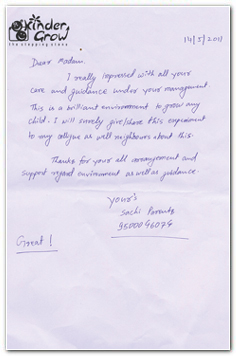 Kinder
Grow
the stepping stone
14/5/2011
Dear Madam,
I really impressed with all your
care and guidance under your management.
This is a brilliant environment to grow any
child. I will surely give/share this experiment
to my collgue as well neighbours about this.
Thanks for your all arrangement and
support regard environment as well as guidance.
Your's
Sachi Parents
Great!